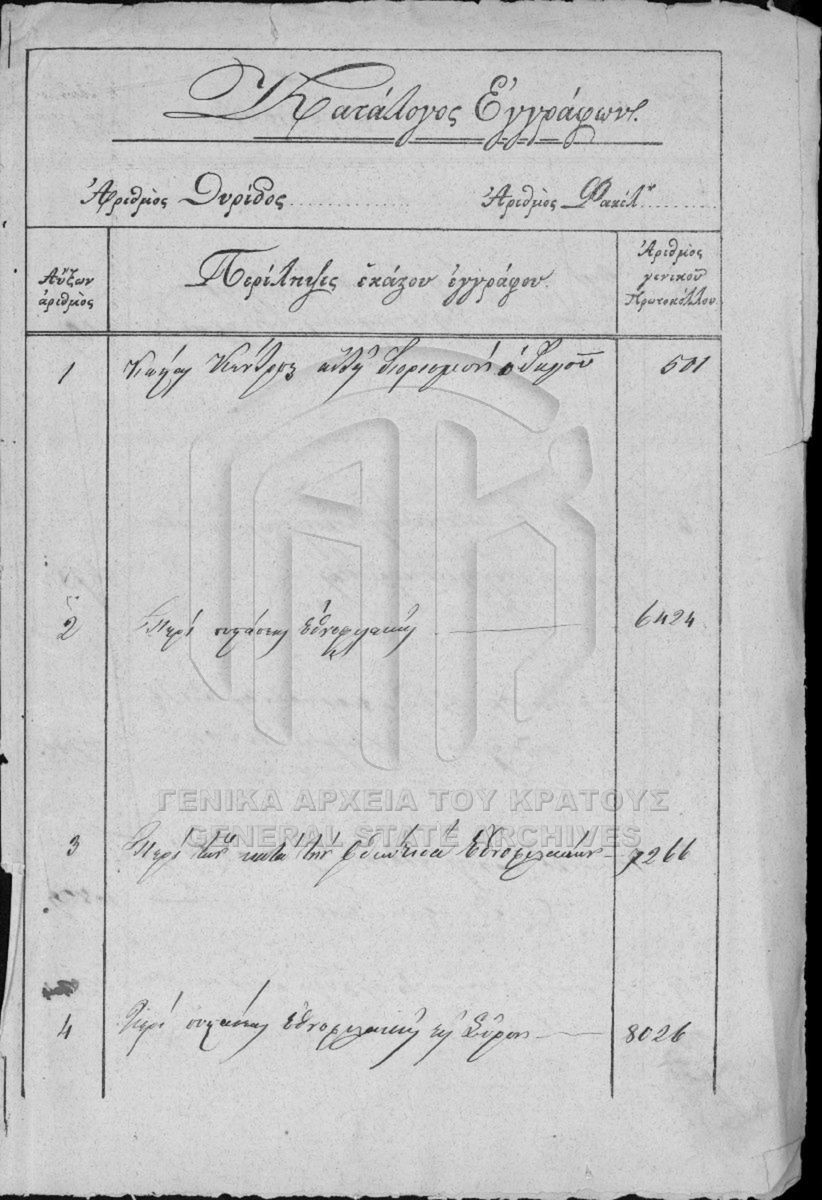 Κατάλογος Ἐγγράφων.
Ἀριθμὸς Θυρίδος Ἀριθμὸς Φακέλ
Αὔξων ἀριθμὸς
Περίληψις ἑκάστου ἐγγράφου.
Ἀριθμὸς γενικοῦ Πρωτοκόλλου.
1 501
2 Περὶ συστάσεως Ἐθνοφυλακῆς 6424
ΓΕΝΙΚΑ ΑΡΧΕΙΑ ΤΟΥ ΚΡΑΤΟΥΣ
GENERAL STATE ARCHIVES
3 Περὶ τῶν κατὰ τὴν Φθιώτιδα Ἐθνοφυλακῶν 7266
4 Περὶ συστάσεως Ἐθνοφυλακῆς εἰς Σύρον 8026